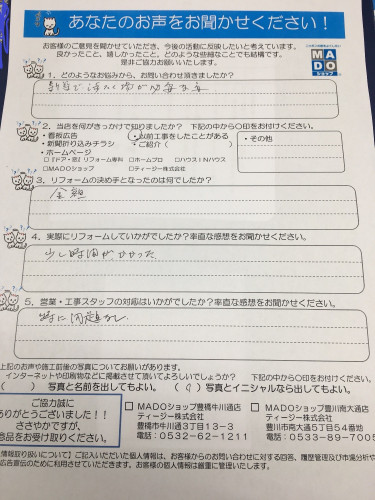 あなたのお声をお聞かせください！
お客様のご意見を聞かせていただき、今後の活動に反映したいと考えています。
良かったこと、嬉しかったこと、どのような些細なことでも結構です。
是非ご協力お願いいたします。
MADO
ショップ
1．どのようなお悩みから、お問い合わせ頂きましたか？
2．当店を何がきっかけで知りましたか？ 下記の中から○印をお付けください。
・看板広告
・以前工事をしたことがある
・その他
・新聞折り込みチラシ
・ご紹介（　　　）
・ホームページ
□『ドア・窓』リフォーム専科 □ホームプロ □ハウスINハウス
□MADOショップ □ティージー株式会社
3．リフォームの決め手となったのは何でしたか？
金額
4．実際にリフォームしていかがでしたか？率直な感想をお聞かせください。
少し時間がかかった
5．営業・工事スタッフの対応はいかがでしたか？率直な感想をお聞かせください。
特に問題なし
上記のお声や施工前後の写真についてお願いがあります。
インターネットや印刷物などに掲載させて頂いてよろしいでしょうか？ 下記の中から○印をお付けください。
（　）写真と名前を出してもよい。（○）写真とイニシャルなら出してもよい。
ご協力誠に
ありがとうございました！！
ささやかですが、
品をお受け取りください。
□ MADOショップ豊橋牛川通店
ティージー株式会社
豊橋市牛川通3丁目13－3
電話：0532-62-1211
□ MADOショップ豊川南大通店
ティージー株式会社
豊川市南大通5丁目54番地
電話：0533-89-7005
情報取り扱いについて】ご記入いただいた個人情報は、お客様からのお問い合わせに対する回答、履歴管理及び市場分析や
広告宣伝のために利用させていただきます。お客様の個人情報は厳重に管理いたします。